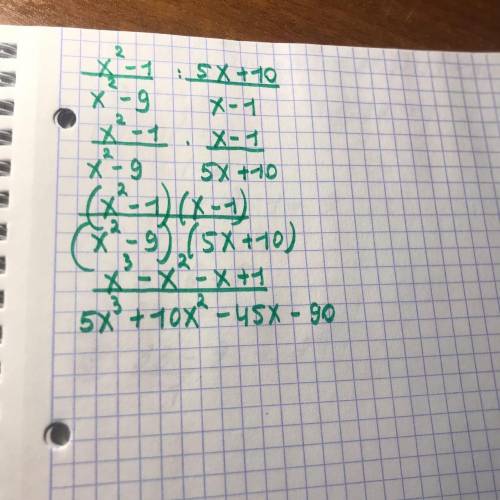 x² - 1 : 5x + 10
x² - 9 x - 1
x² - 1 · x - 1
x² - 9 5x + 10
(x² - 1)(x - 1)
(x² - 9)(5x + 10)
x³ - x² - x + 1
5x³ + 10x² - 45x - 90